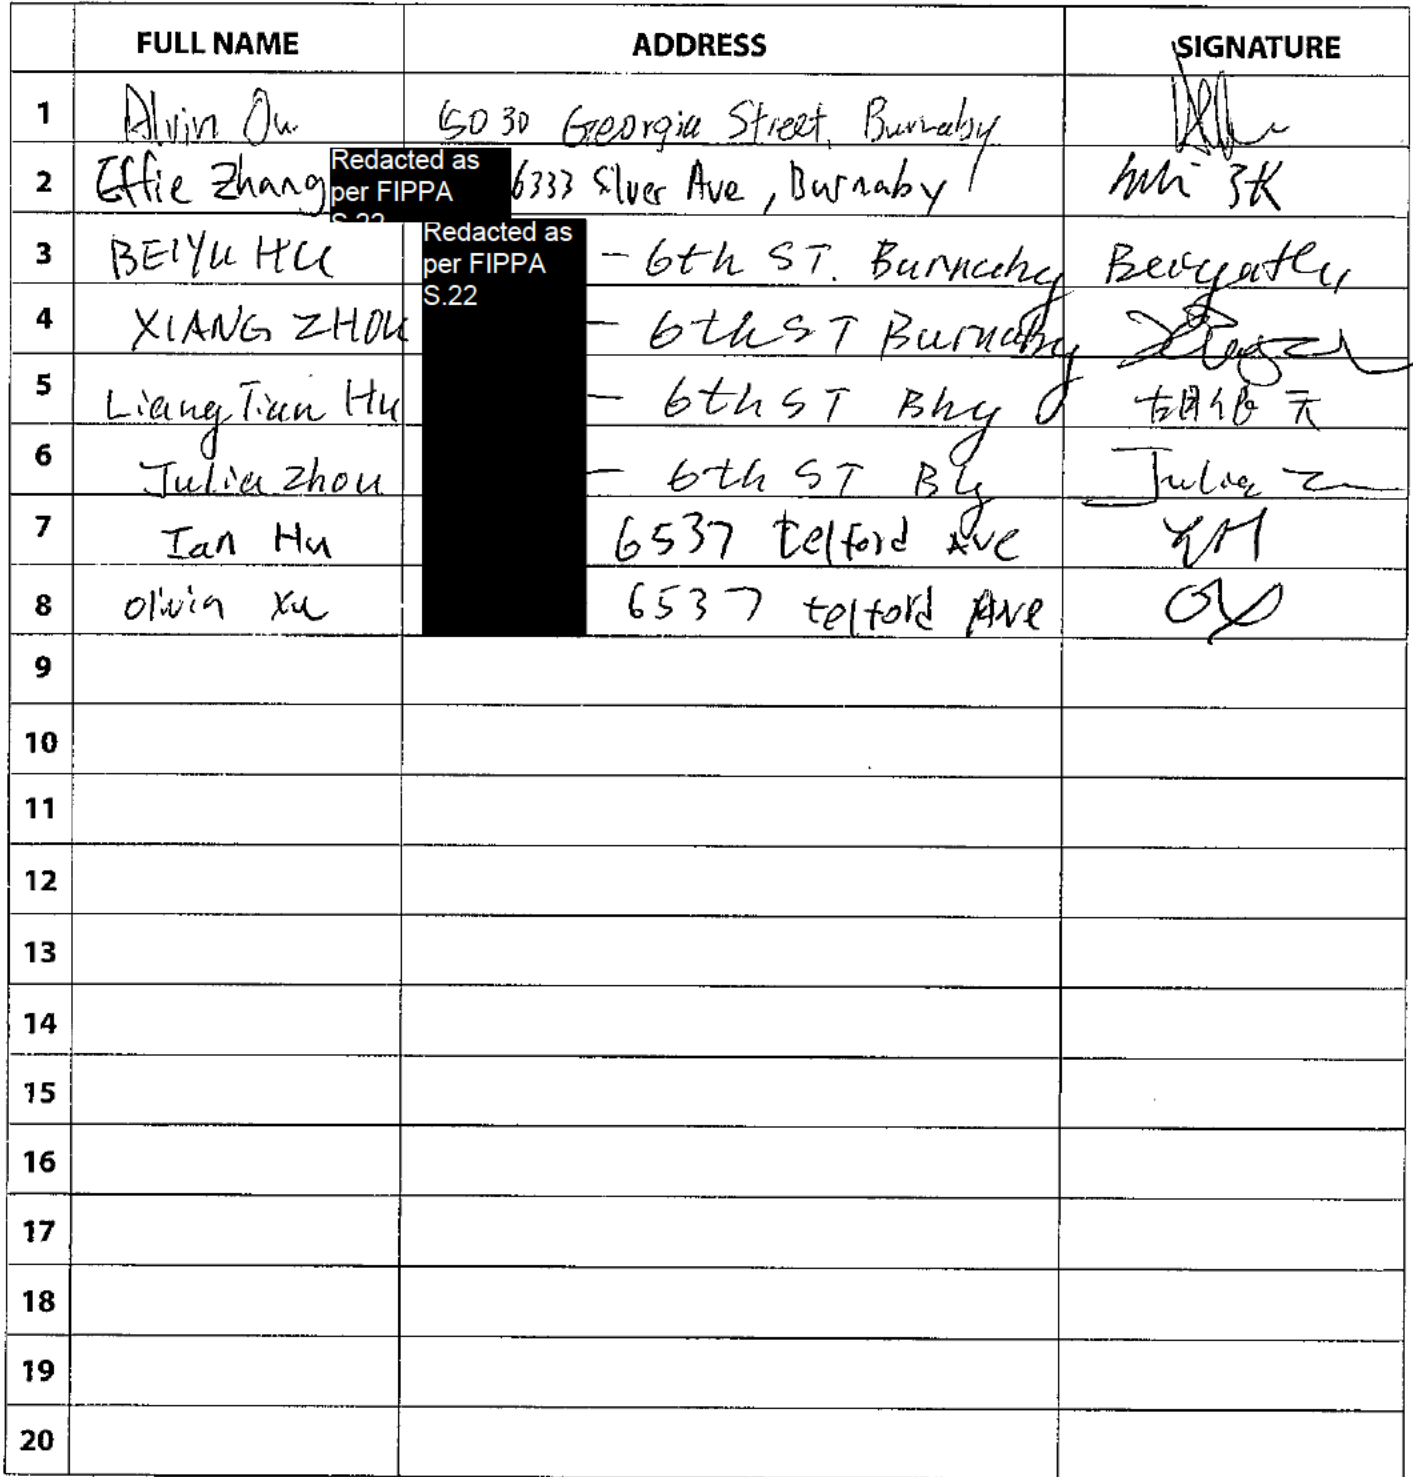 FULL NAME ADDRESS SIGNATURE
1 Alvin Ou 5030 Georgia Street, Burnaby
2 Effie Zhang Redacted as per FIPPA S.22 6333 Silver Ave, Burnaby
3 BEIYU HU Redacted as per FIPPA S.22 - 6th ST. Burnaby Beiyu Hu
4 XIANG ZHOU - 6th ST Burnaby
5 Liang Tian Hu - 6th ST Bby
6 Julia Zhou - 6th ST Bby Julia Z
7 Ian Hu 6537 telford Ave
8 Olivia Xu 6537 telford Ave OX
9
10
11
12
13
14
15
16
17
18
19
20